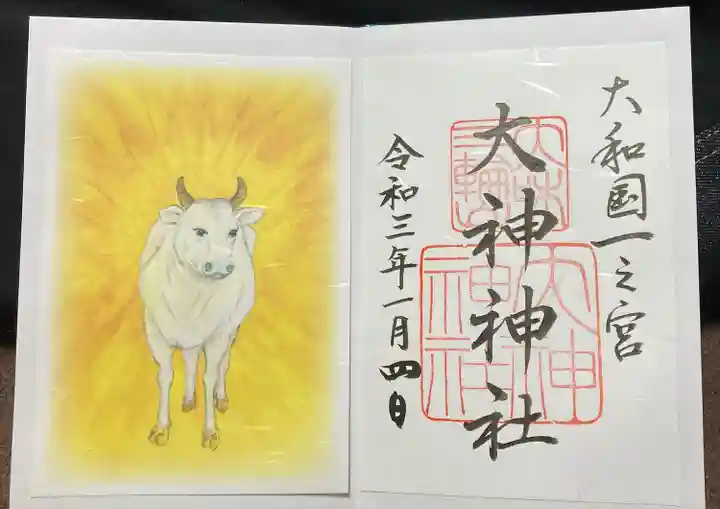 大和国一之宮
大神神社
三輪
大神
神社
令和三年一月四日